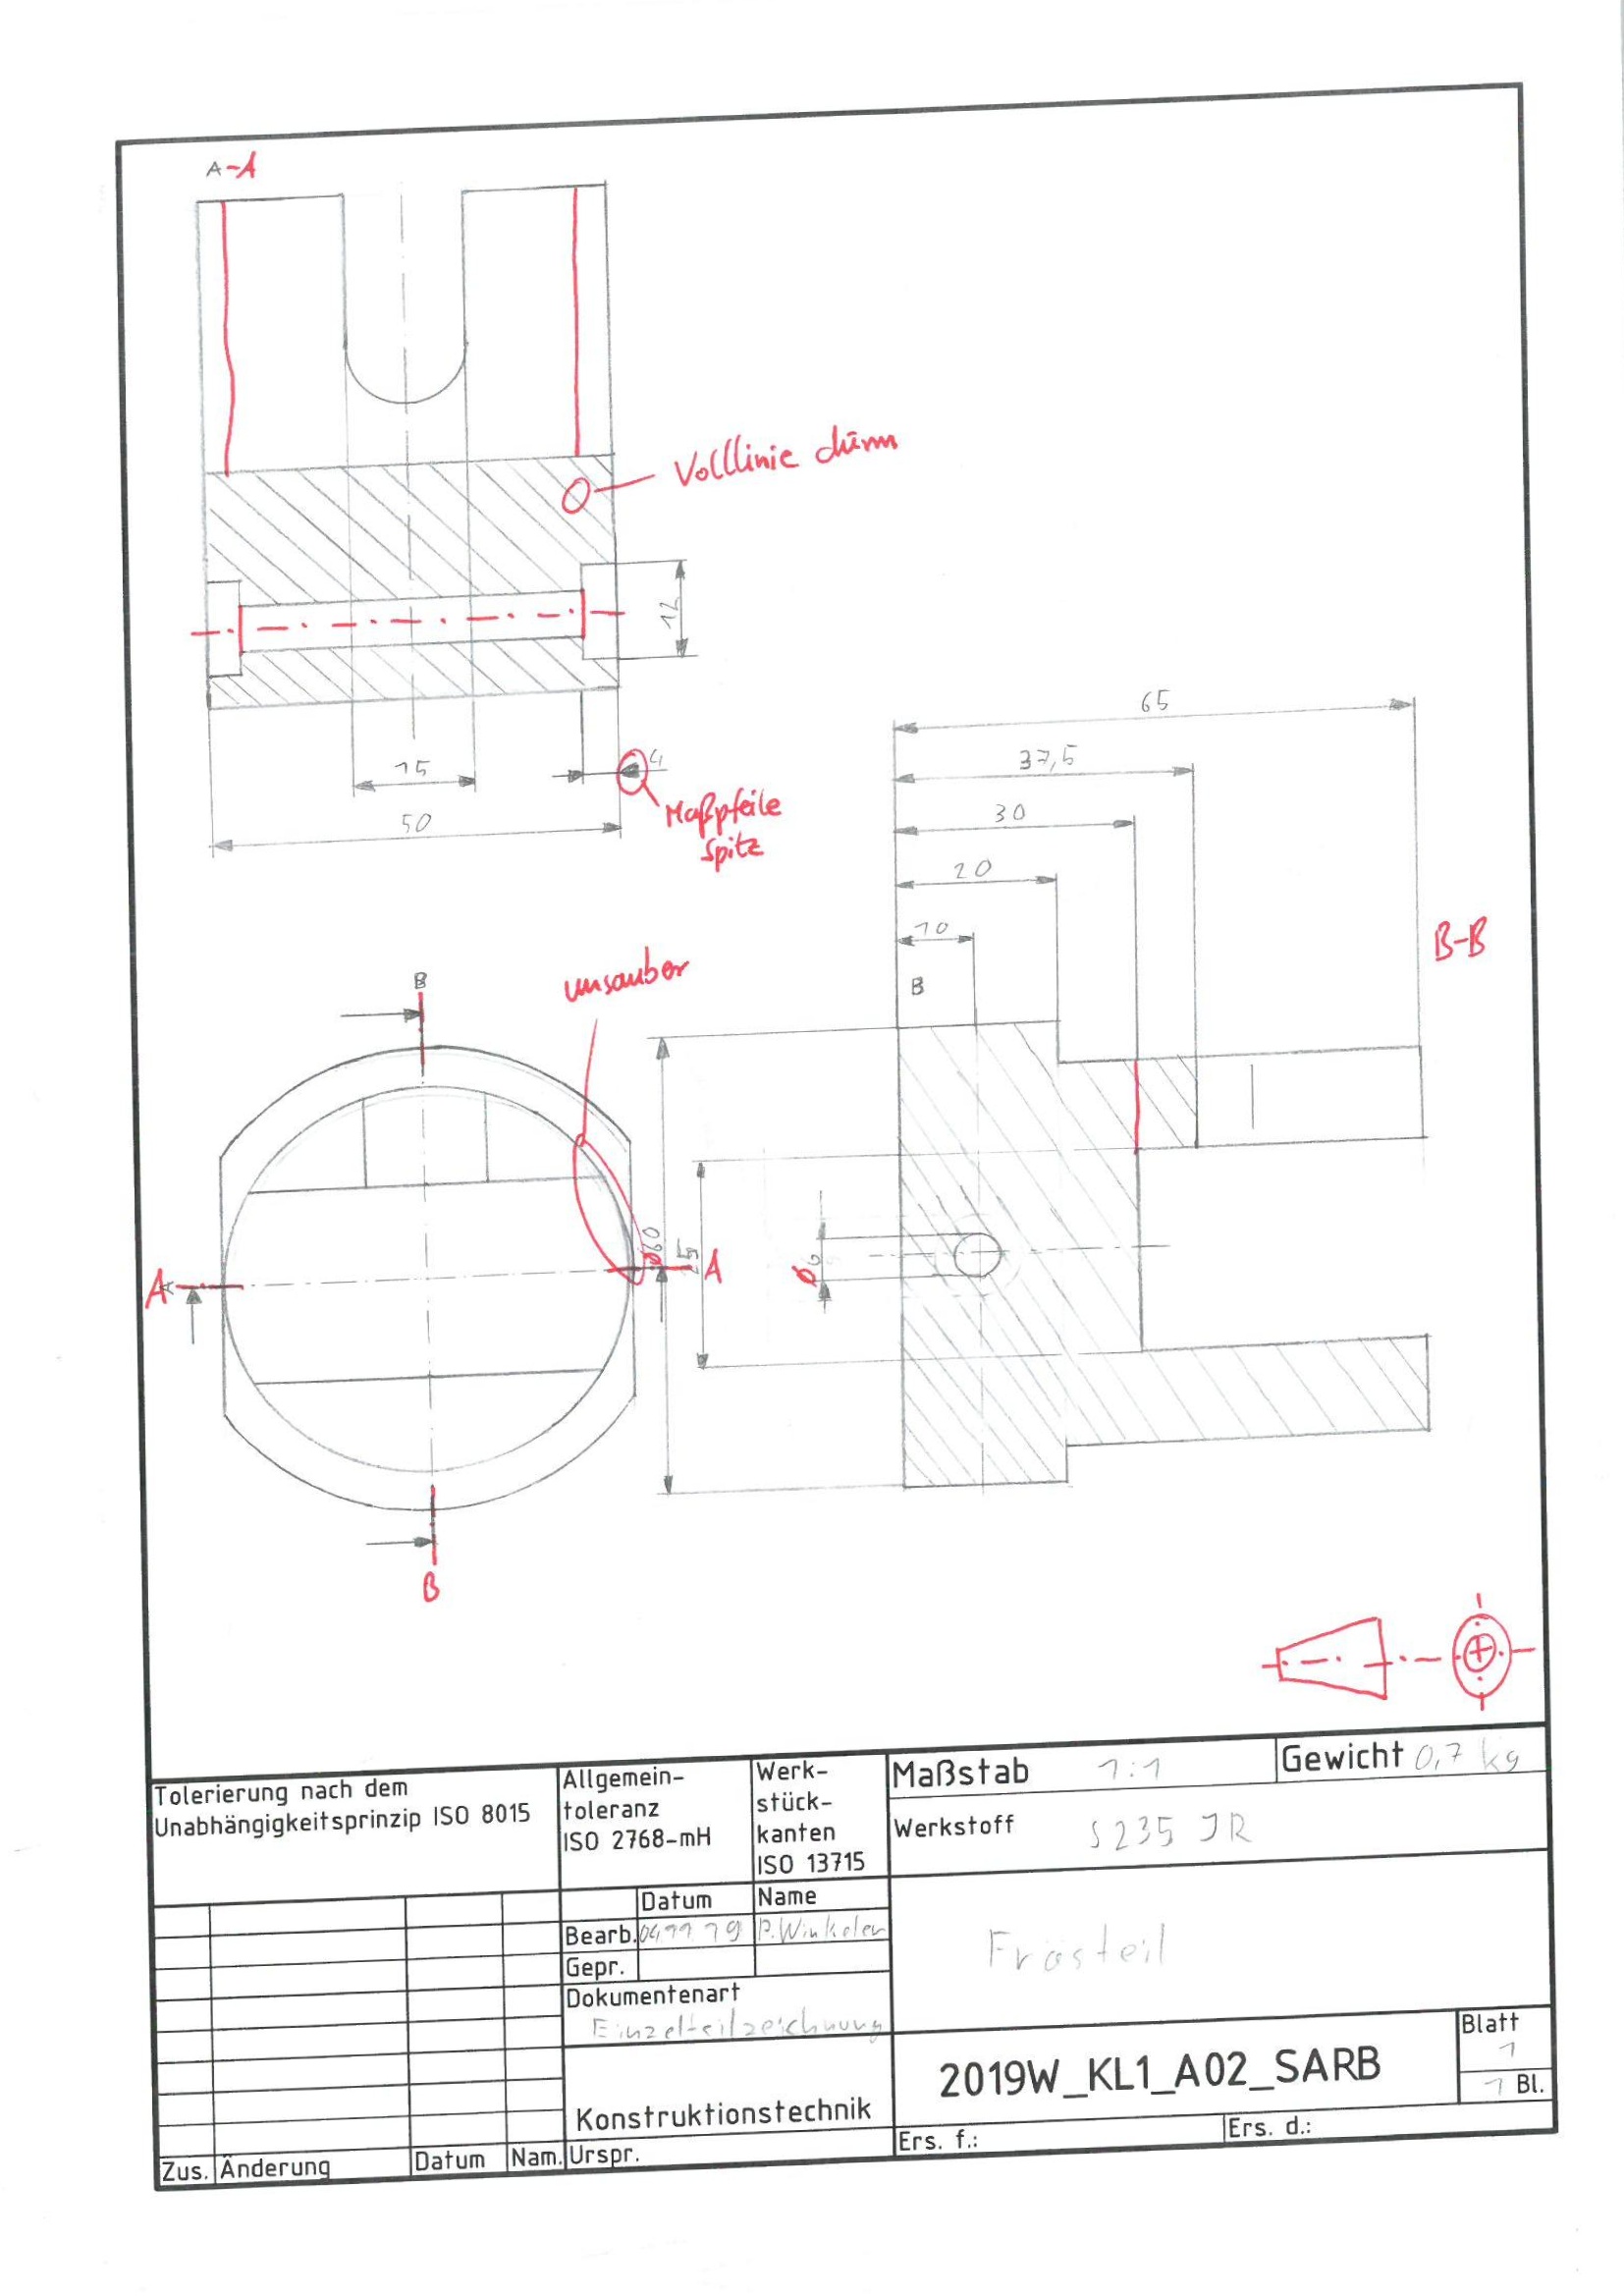 A-A
Volllinie dünn
12
15
4
50
Maßpfeile
spitz
65
37,5
30
20
10
B-B
B
B
unsauber
ø60
25
ø6
A
A
B
Tolerierung nach dem
Unabhängigkeitsprinzip ISO 8015
Allgemein-
toleranz
ISO 2768-mH
Werk-
stück-
kanten
ISO 13715
Maßstab 1:1
Gewicht 0,7 kg
Werkstoff S235 JR
Datum Name
Bearb. 04.11.19 P. Winkeler
Gepr.
Dokumentenart
Einzelteilzeichnung
Frästeil
Konstruktionstechnik
2019W_KL1_A02_SARB
Blatt
1
1 Bl.
Zus. Änderung Datum Nam. Urspr.
Ers. f.: Ers. d.: